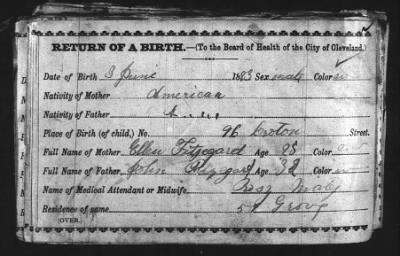 RETURN OF A BIRTH.—(To the Board of Health of the City of Cleveland.)
Date of Birth 3 June 1883 Sex male Color w
Nativity of Mother American
Nativity of Father A
Place of Birth (of child.) No. 96 Croton Street.
Full Name of Mother Ellen Fitzgerard Age 28 Color
Full Name of Father John Age 32 Color w
Name of Medical Attendant or Midwife,
Residence of same 51 Grove
(OVER.)